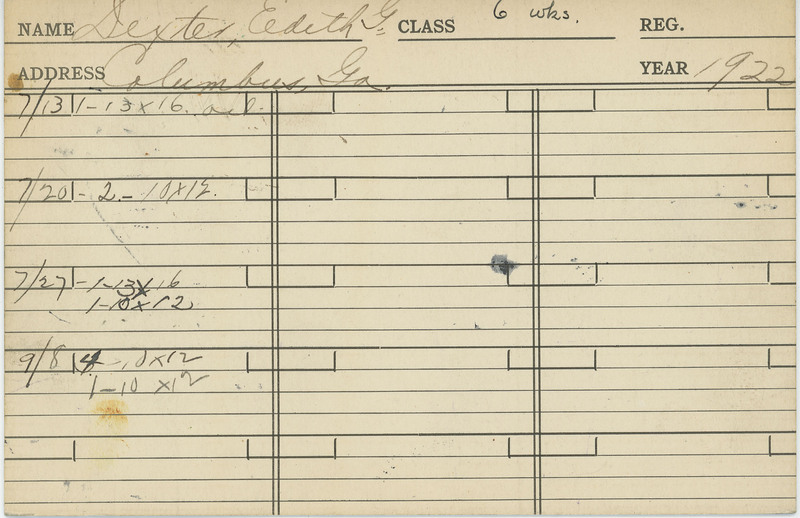 NAME Dexter, Edith G. CLASS 6 wks. REG.
ADDRESS Columbus, Ga. YEAR 1922
7/13 1-13x16. oil.
7/20 - 2 - 10x12.
7/27 - 1-13x16
1-10x12
9/8 4 - 10x12
1-10 x12